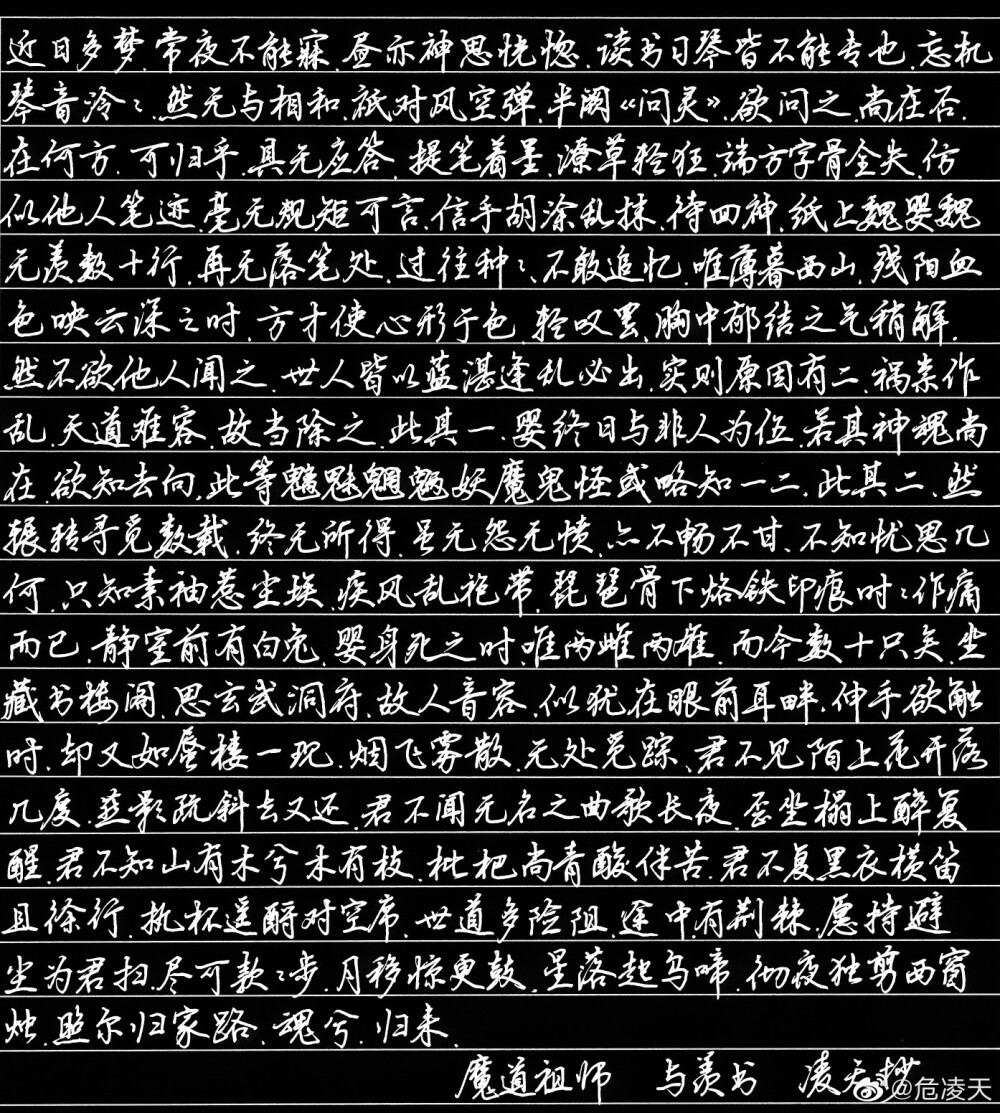 近日多梦.常夜不能寐.昼亦神思恍惚.读书习琴皆不能专也.忘机
琴音泠〻.然无与相和.祗对风空弹.半阕《问灵》.欲问之.尚在否.
在何方.可归乎.具无应答.提笔着墨.潦草轻狂.端方字骨全失.仿
似他人笔迹.毫无规矩可言.信手胡涂乱抹.待回神.纸上魏婴魏
无羡数十行.再无落笔处.过往种〻.不敢追忆.唯薄暮西山.残阳血
色映云深之时.方才使心形于色.轻叹罢.胸中郁结之气稍解.
然不欲他人闻之.世人皆以蓝湛逢乱必出.实则原因有二.祸祟作
乱.天道难容.故当除之.此其一.婴终日与非人为伍.若其神魂尚
在.欲知去向.此等魑魅魍魉妖魔鬼怪或略知一二.此其二.然
辗转寻觅数载.终无所得.虽无怨无愤.亦不畅不甘.不知忧思几
何.只知素袖惹尘埃.疾风乱袍带.琵琶骨下烙铁印痕时〻作痛
而已.静室前有白兔.婴身死之时.唯两雌两雄.而今数十只矣.坐
藏书楼阁.思玄武洞府.故人音容.似犹在眼前耳畔.伸手欲触
时.却又如蜃楼一现.烟飞雾散.无处觅踪.君不见陌上花开落
几度.燕影疏斜去又还.君不闻无名之曲歌长夜.歪坐榻上醉复
醒.君不知山有木兮木有枝.枇杷尚青酸伴苦.君不复黑衣横笛
且徐行.执杯遥酹对空席.世道多险阻.途中有荆棘.愿持避
尘为君扫.尽可款〻步.月移惊更鼓.星落起乌啼.彻夜独剪西窗
烛.照尔归家路.魂兮.归来.
魔道祖师 与羡书 凌天抄
@危凌天